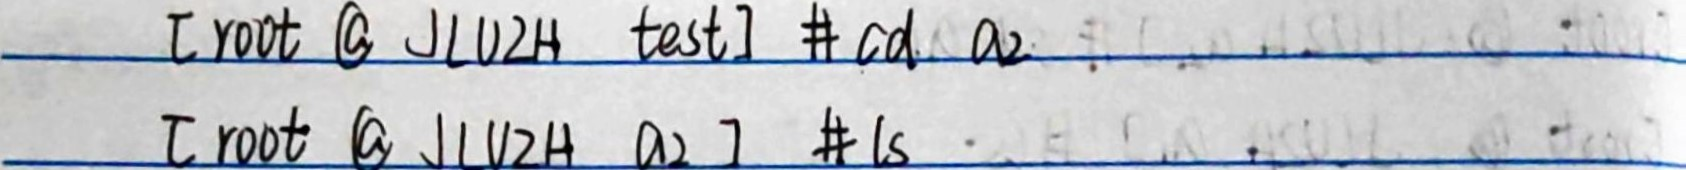 [root @ JLUZH test] # cd a2
[root @ JLUZH a2] # ls